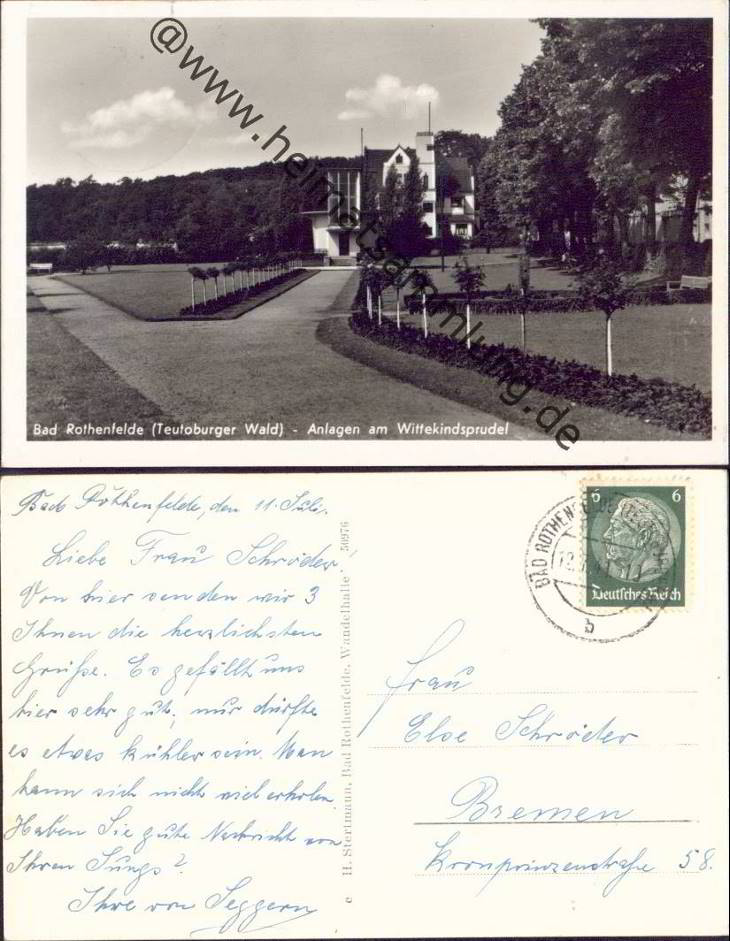 @www.heimatsammlung.de
Bad Rothenfelde (Teutoburger Wald) - Anlagen am Wittekindsprudel
Bad Rothenfelde, den 11. Juli.
Liebe Frau Schröder!
Von hier senden wir 3
Ihnen die herzlichsten
Grüße. Es gefällt uns
hier sehr gut, nur dürfte
es etwas kühler sein. Man
kann sich nicht viel erholen.
Haben Sie gute Nachricht von
Ihren Jungs?
Ihre von Seggern
c H. Stertmann, Bad Rothenfelde, Wandelhalle 50976
6 6
Deutsches Reich
BAD ROTHENFELDE
b
Frau
Else Schröder
Bremen
Kronprinzenstraße 58.